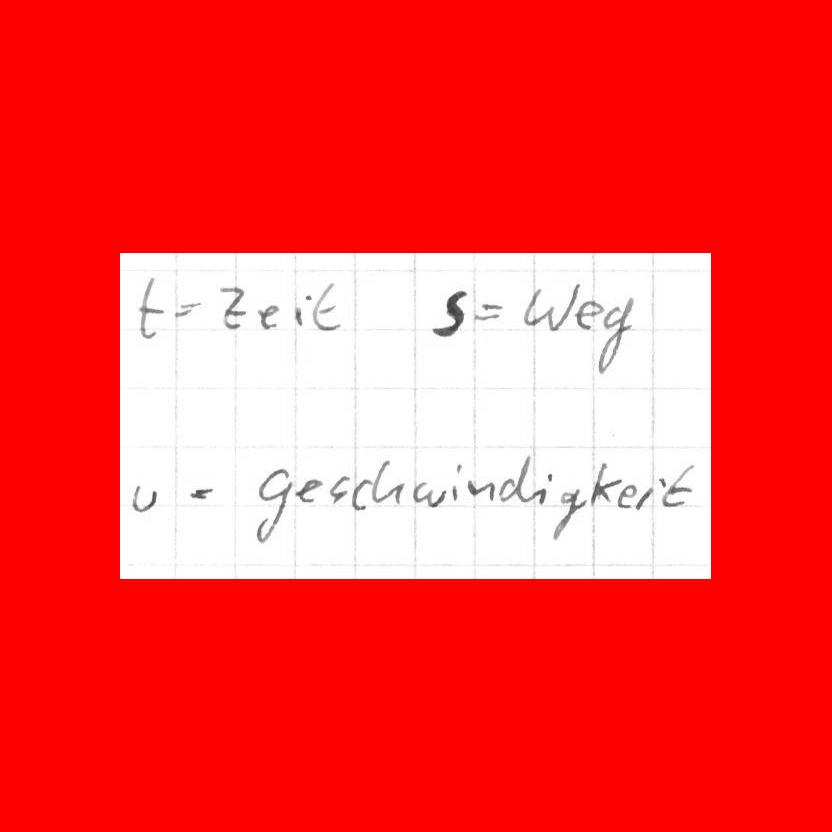 t = Zeit s = Weg
v = Geschwindigkeit